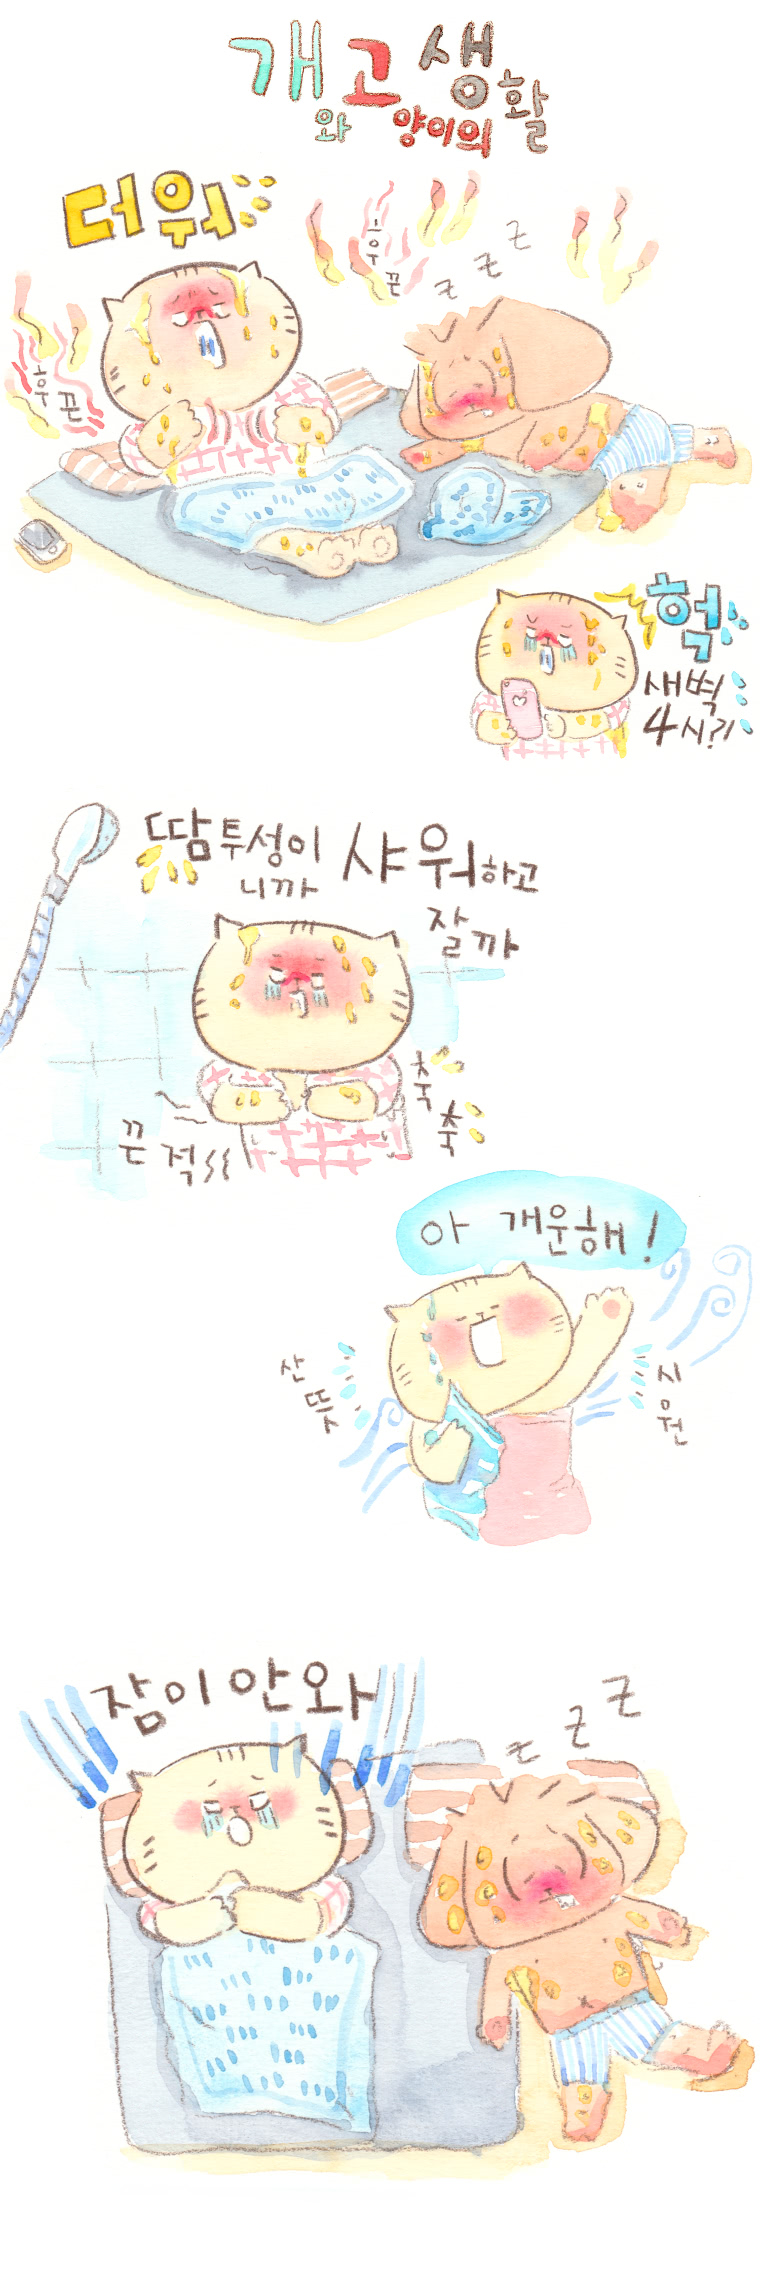 개와 고양이의 생활
더워
후끈
후끈
z z z
헉
새벽
4시?!
땀투성이
니까
샤워하고
잘까
축
축
끈적
아 개운해!
산뜻
시원
잠이 안와
z z z